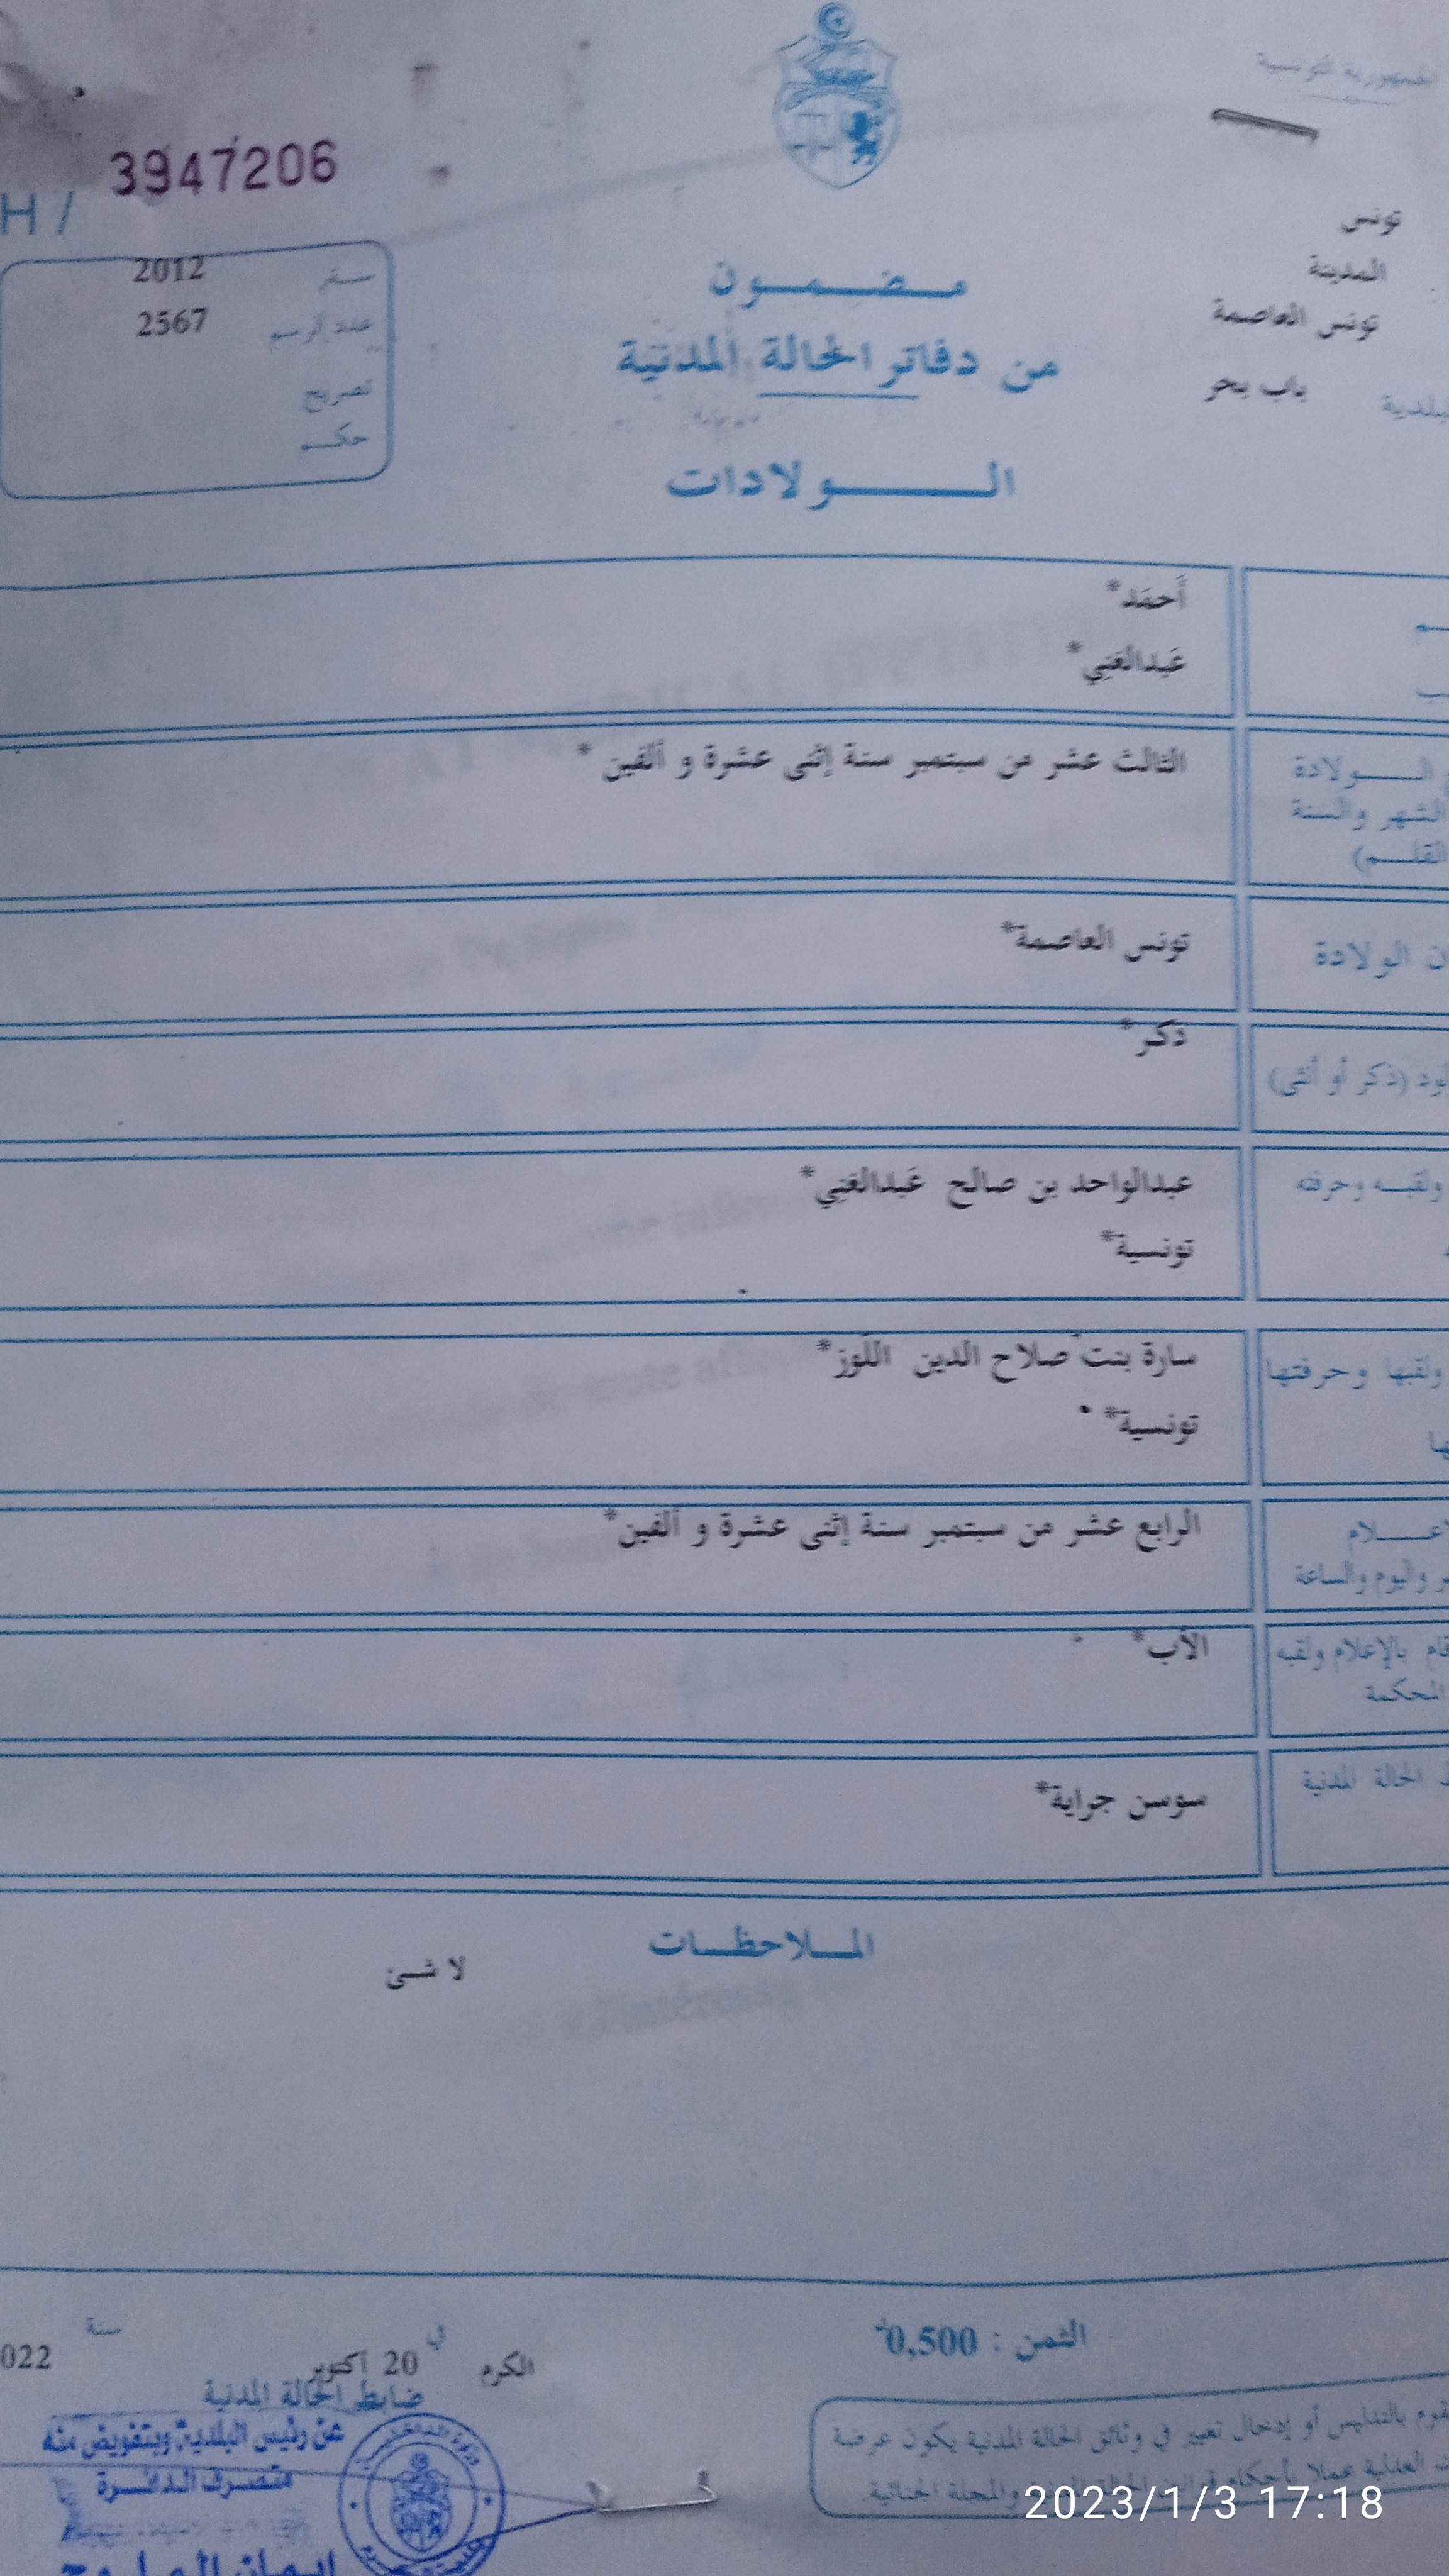 الجمهورية التونسية
3947206
H /
تونس
المدينة
تونس العاصمة
بلدية باب بحر
سفر 2012
عدد الرسم 2567
تصريح
حكم
مضمون
من دفاتر الحالة المدنية
الولادات
أَحمَد*
عَبدالغَنِي*
الولادة
الشهر والسنة
القلم)
الثالث عشر من سبتمبر سنة إثنى عشرة و ألفين *
الولادة
تونس العاصمة*
(ذكر أو أنثى)
ذكر*
ولقبه وحرفته
عبدالواحد بن صالح عَبدالغَنِي*
تونسية*
ولقبها وحرفتها
سارة بنت صلاح الدين اللّوز*
تونسية*
واليوم والساعة
الرابع عشر من سبتمبر سنة إثنى عشرة و ألفين*
بالإعلام ولقبه
المحكمة
الأب*
الحالة المدنية
سوسن جراية*
الملاحظات
لا شئ
الثمن : 0,500د
الكرم في 20 أكتوبر سنة 022
ضابط الحالة المدنية
عن رئيس البلدية وبتفويض منه
متصرف الدائرة
بالتدليس أو إدخال تغيير في وثائق الحالة المدنية يكون عرضة
العدلية عملا بأحكام والمجلة الجنائية.
2023/1/3 17:18